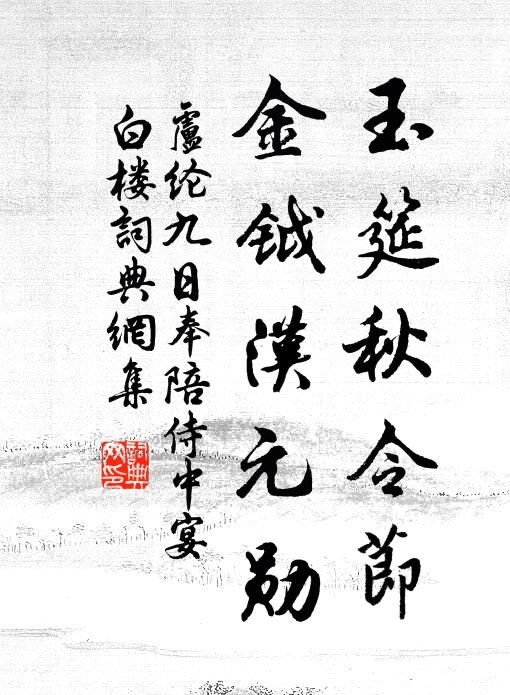 玉筵秋令節
金钺漢元勋
盧纶九日奉陪侍中宴
白楼詞典網集
詞典